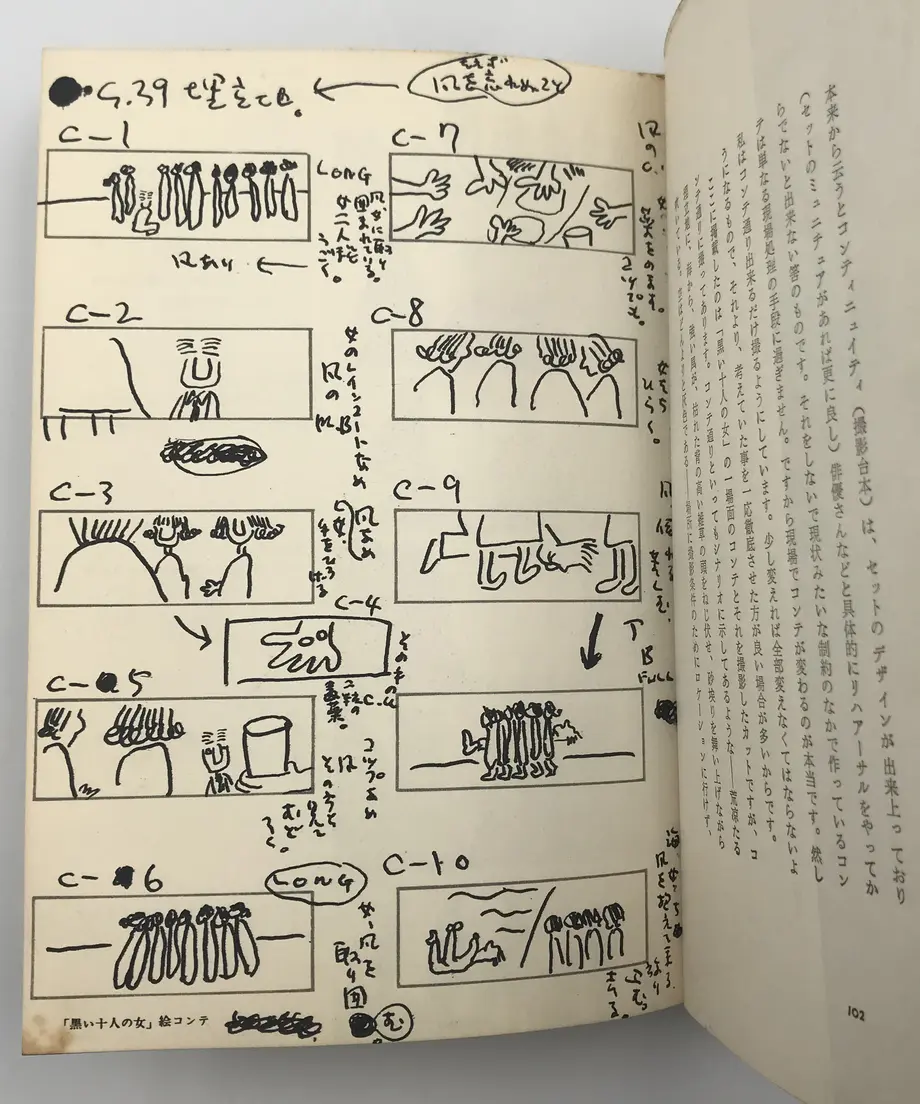 S.39 埋立地。
風を忘れぬこと
C-1
LONG
風、女に取り
囲まれている。
女二人ほど
うごく。
風あり
C-2
女のレインコートなめ
風の
M.B
C-3
風なめ
女、
手をひろ
げる
C-4
その手のC.U
二粒の
C-5
コップなめ
風
そのうち
見て
おど
ろく。
C-6
LONG
女、風を
取り囲
む
C-7
風の
C-8
女たち
ひらく。
C-9
風、倒れる
F
B
FULL
C-10
「黒い十人の女」絵コンテ
本来から云うとコンティニュイティ(撮影台本)は、セットのデザインが出来上っており
(セットのミニチュアがあれば更に良し)俳優さんなどと具体的にリハーサルをやってか
らでないと出来ない筈のものです。それをしないで現状みたいな制約のなかで作っているコン
テは単なる現場処理の手段に過ぎません。ですから現場でコンテが変わるのが本当です。然し
私はコンテ通り出来るだけ撮るようにしています。少し変えれば全部変えなくてはならないよ
うになるもので、それより、考えていた事を一応徹底させた方が良い場合が多いからです。
ここに掲載したのは「黒い十人の女」の一場面のコンテとそれを撮影したカットですが、コ
ンテ通りに撮ってあります。コンテ通りといってもシナリオに示してあるような——荒涼たる
海から、強い風が、枯れた背の高い雑草の頭をねじ伏せ、砂埃りを舞い上げながら
吹いている。空はどんよりと灰色である——場所に撮影条件のためにロケーションに行けず、
102